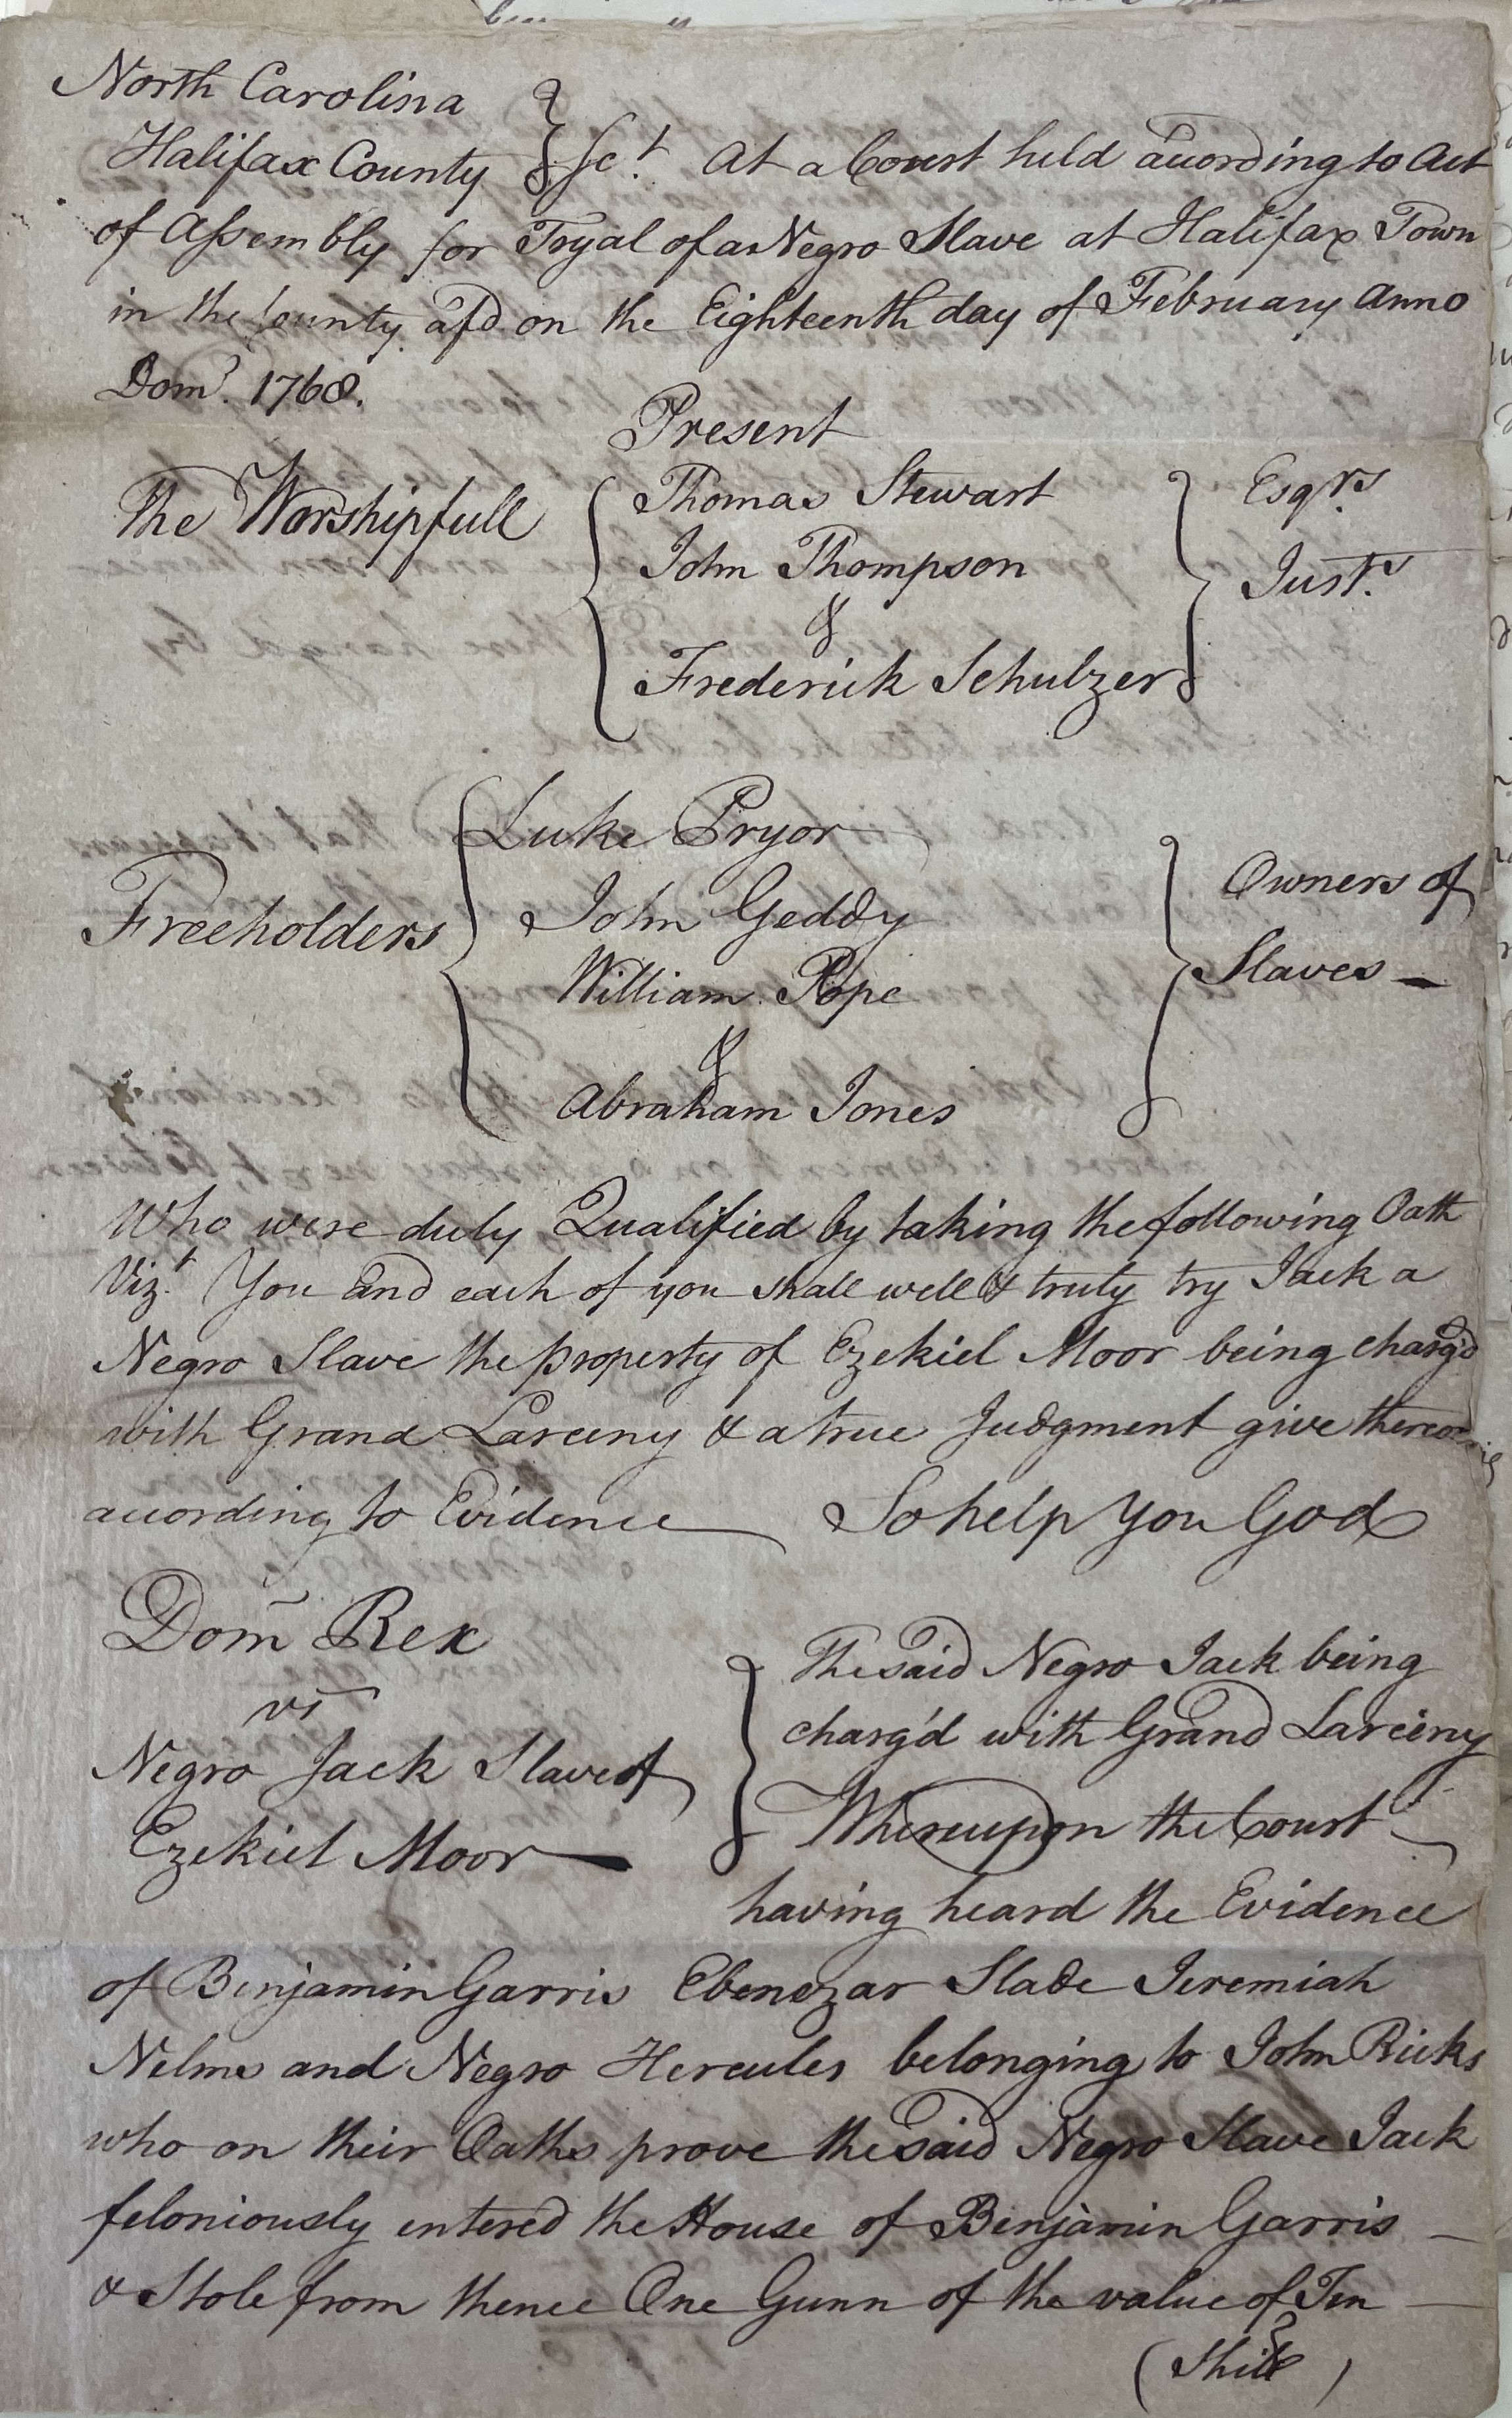 North Carolina
Halifax County } Sct. At a Court held according to Act
of Assembly for Tryal of a Negro Slave at Halifax Town
in the County afd. on the Eighteenth day of February Anno
Domi. 1768.
Present
The Worshipfull { Thomas Stewart } Esqrs.
John Thompson Justs.
&
Frederick Schulzer
Freeholders { Luke Pryor } Owners of
John Geddy
William Pope Slaves —
&
Abraham Jones
Who were duly Qualified by taking the following Oath
Vizt. You and each of you shall well & truly try Jack a
Negro Slave the property of Ezekiel Moor being charg'd
with Grand Larceny & a true Judgment give thereon
according to Evidence So help You God
Dom̄ Rex
vs
Negro Jack Slave of
Ezekiel Moor —
} The said Negro Jack being
charg'd with Grand Larceny
Whereupon the Court
having heard the Evidence
of Benjamin Garris Ebenezar Slade Jeremiah
Nelms and Negro Hercules belonging to John Ricks
who on their Oaths prove the said Negro Slave Jack
feloniously entered the House of Benjamin Garris —
& Stole from thence One Gunn of the value of Ten —